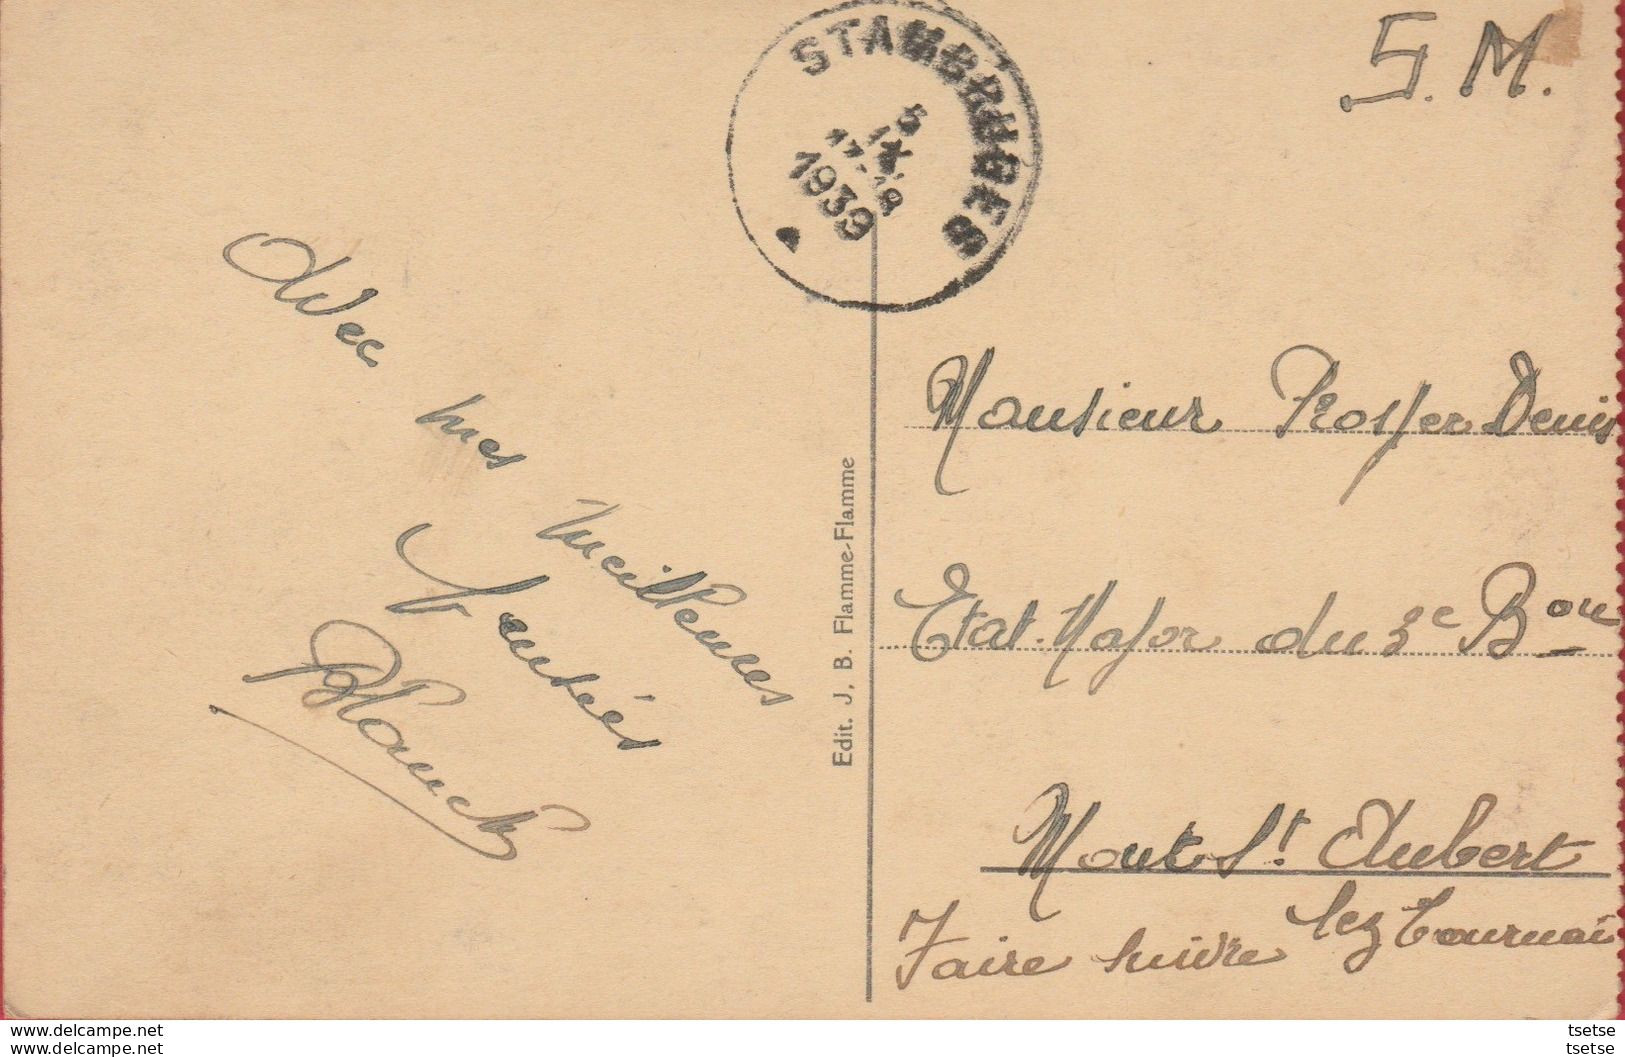 STAMBRUGES
5
IX
17-18
1939
S.M.
Avec
mes
meilleures
Pensées
Blanck
Edit. J. B. Flamme-Flamme
Monsieur Prosper Denis
Etat-Major du 3e Bon
Mont St Aubert
lez Tournai
Faire suivre
www.delcampe.net
www.delcampe.net
tsetse
tsetse